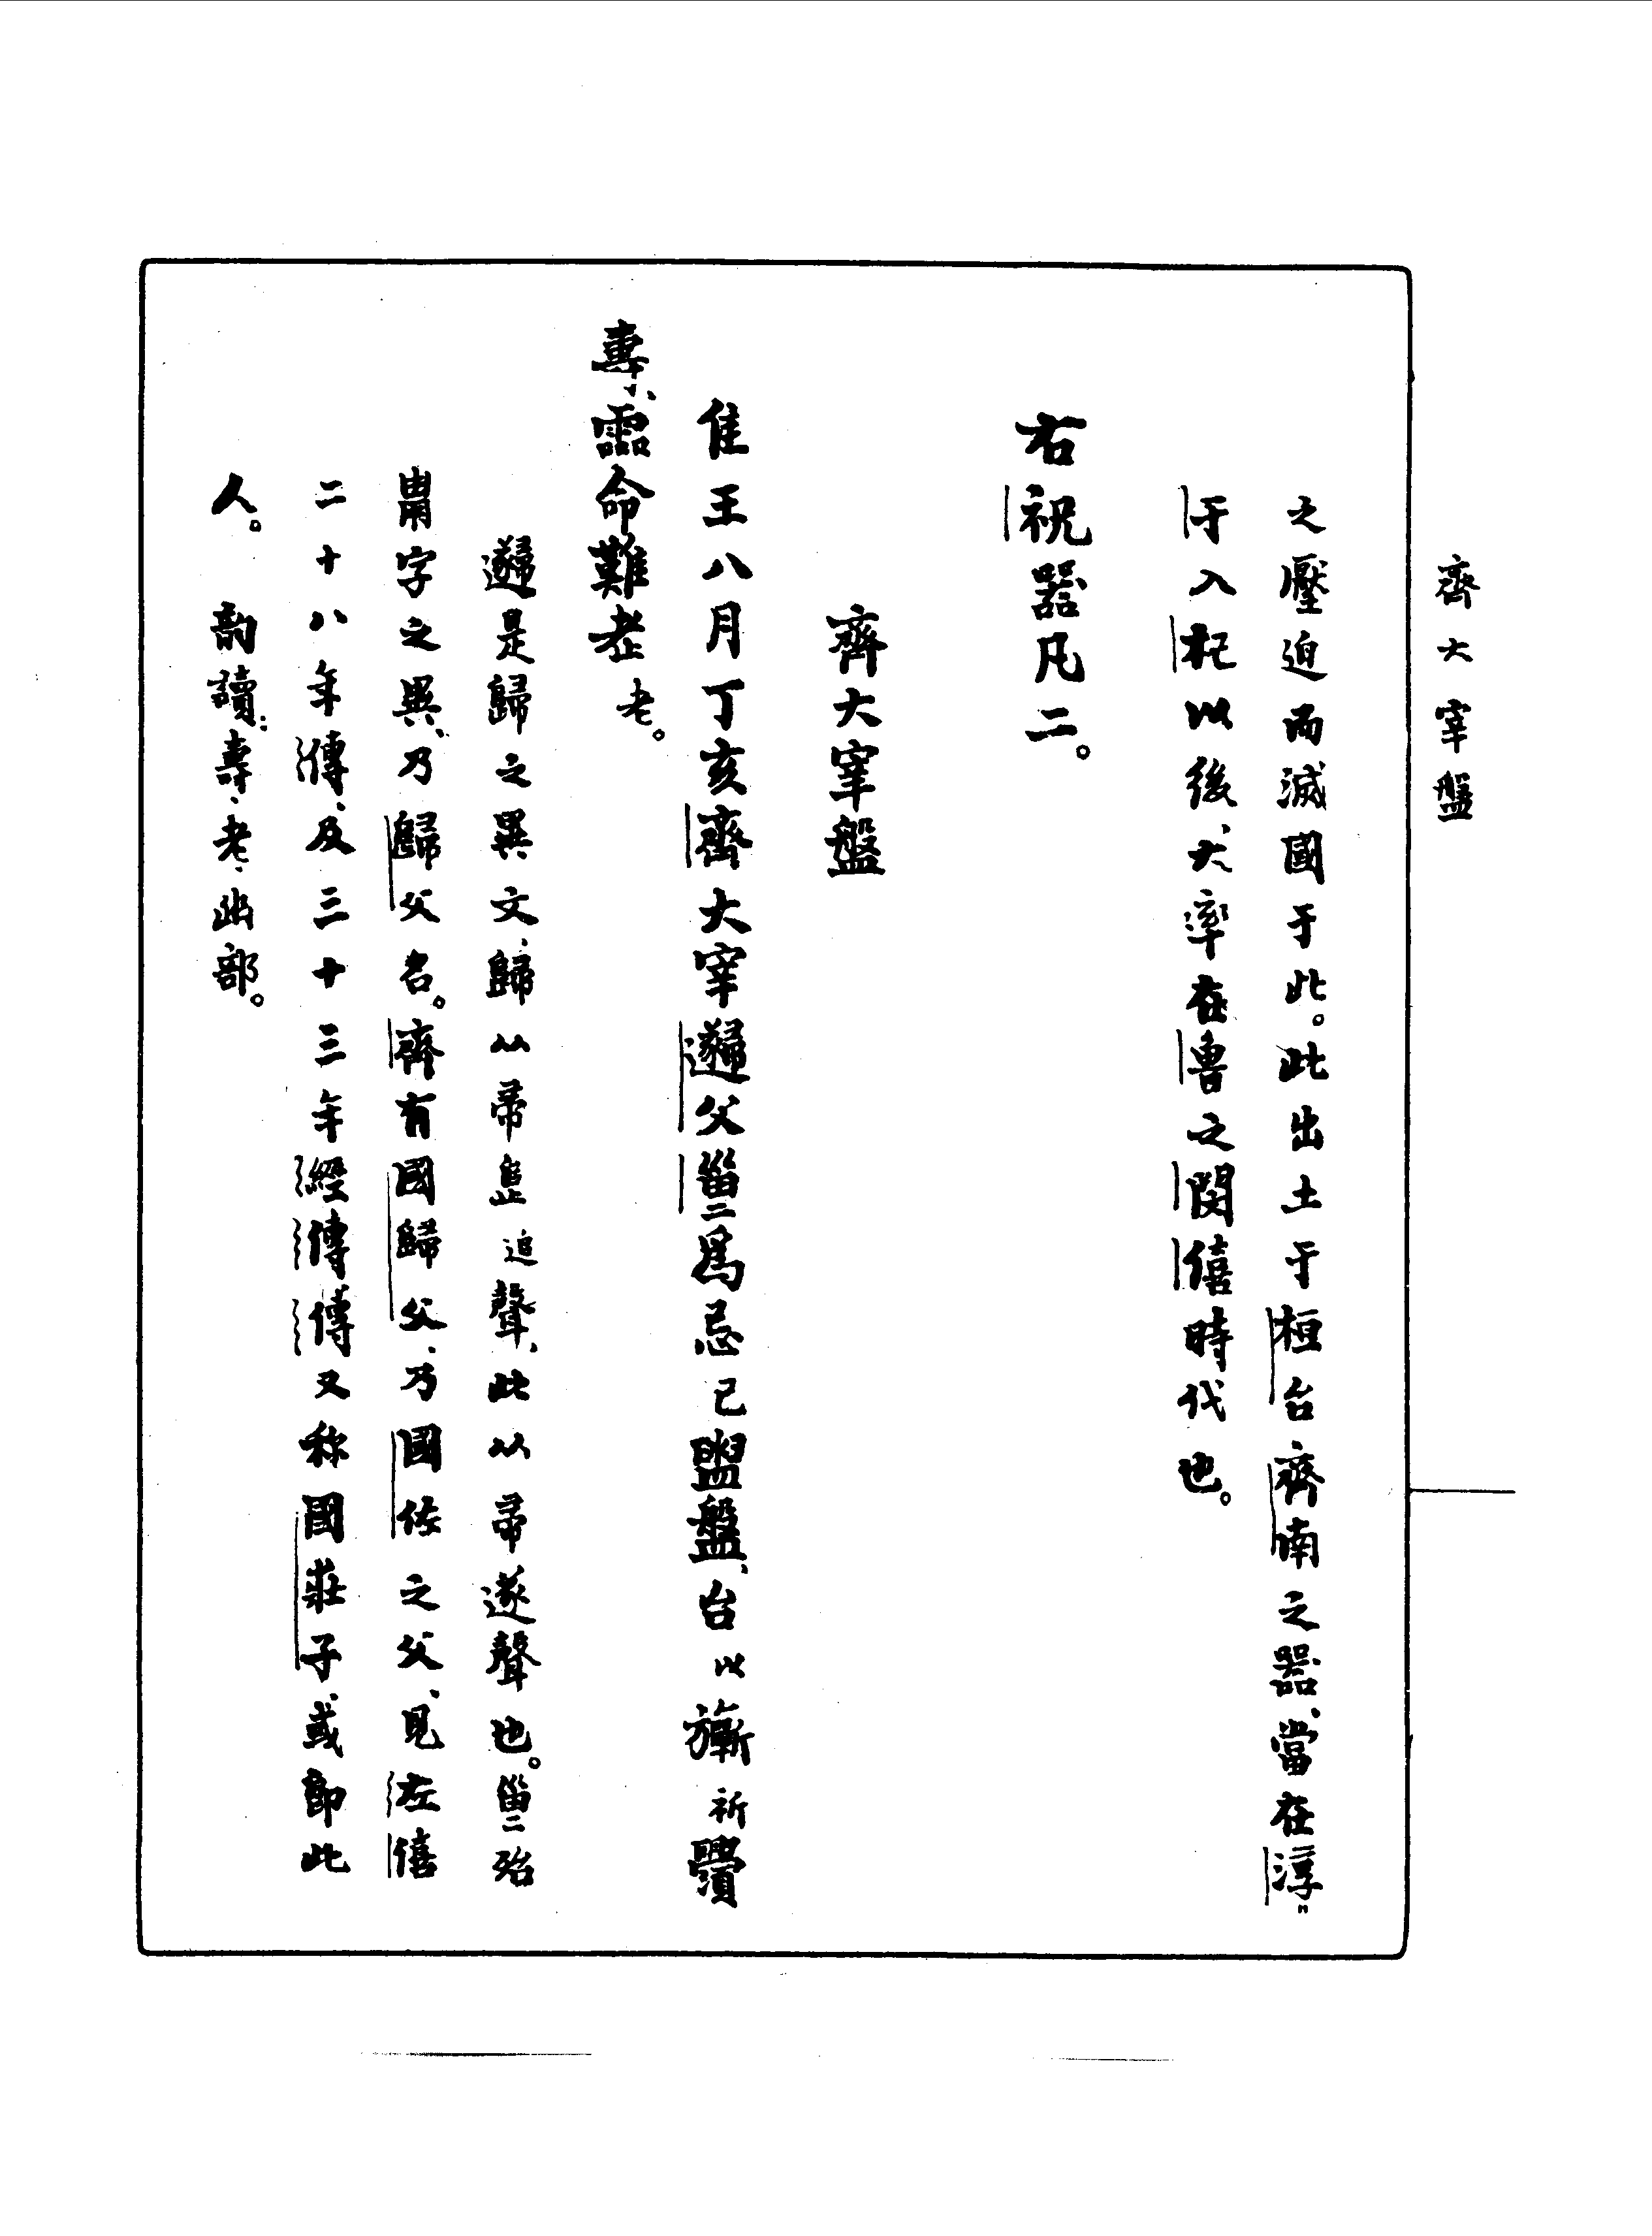 齊大宰盤
之壓迫而滅國于此。此出土于桓台、齊南之器、當在淳〃
于入杞以後、大率在魯之閔僖時代也。
右祝器凡二。
齊大宰盤
隹王八月丁亥齊大宰遹父為忌己盥盤、台以旂祈眉
壽、霝命難老老。
是歸之異文、歸从帚𠂤追聲、此从帚遂聲也。殆
字之異、乃歸父名。齊有國歸父、乃國佐之父、見左僖
二十八年傳、及三十三年經傳傳又称國莊子、或即此
人。 韵讀：壽、老、幽部。